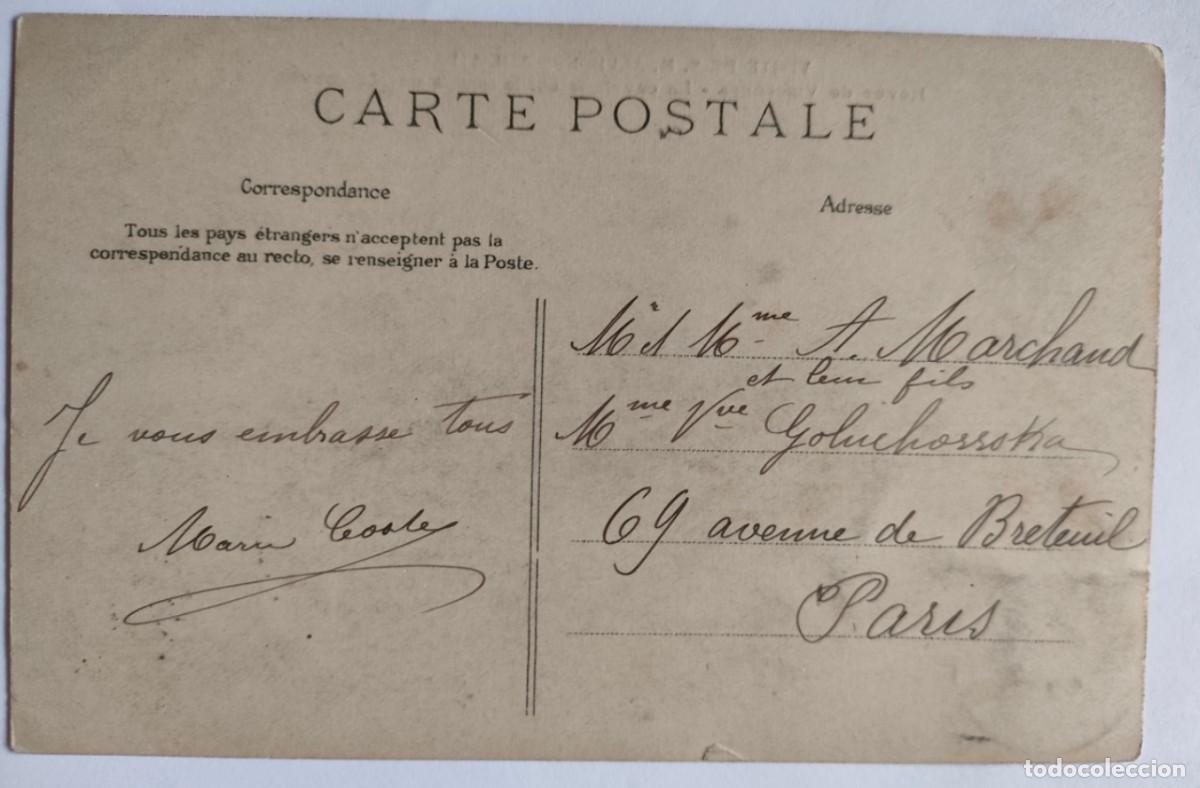 CARTE POSTALE
Correspondance
Tous les pays étrangers n'acceptent pas la
correspondance au recto, se renseigner à la Poste.
Je vous embrasse tous
Marie Coste
Adresse
Mr et Mme A. Marchand
et leur fils
Mme Vve
69 avenue de Breteuil
Paris
todocoleccion